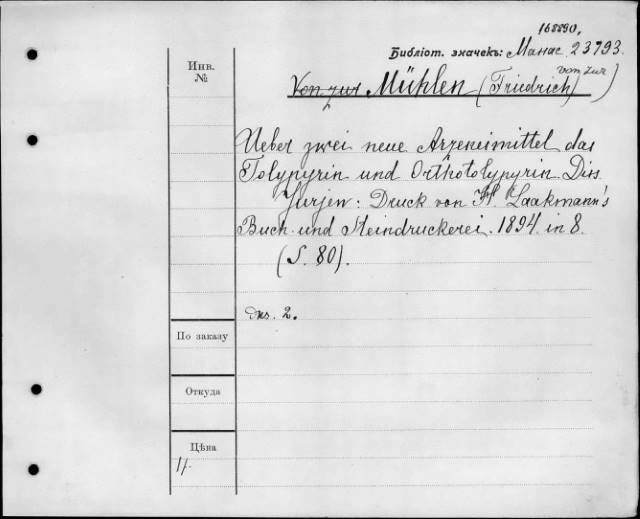 168890.
Библіот. значекъ: Манас 23793.
Инв.
№
Von zur Mühlen (Friedrich vom zur)
Ueber zwei neue Arzeneimittel das
Tolypyrin und Orthotolypyrin Diss.
Jurjew: Druck von H. Laakmann's
Buch- und Steindruckerei. 1894. in 8.
(S. 80).
экз. 2.
По заказу
Откуда
Цѣна